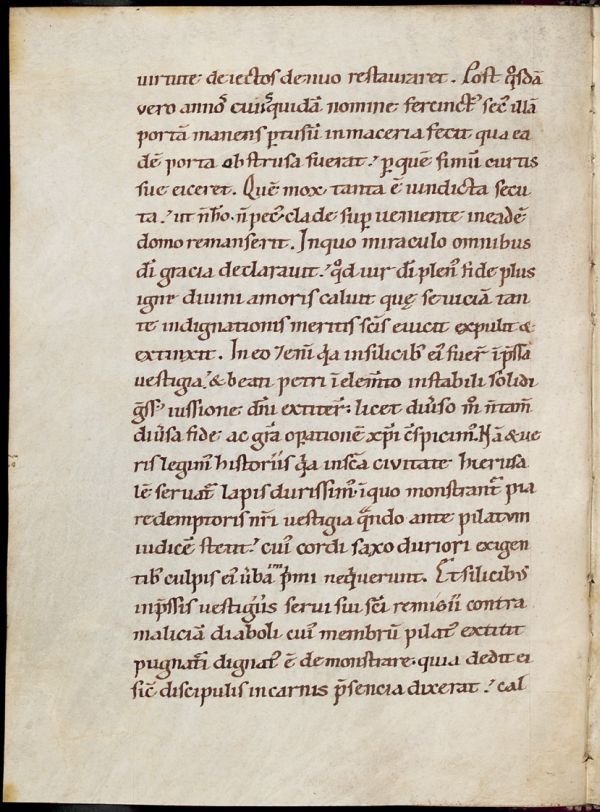 uirtute deiectos denuo restauraret. Post q̊sdā
vero annoſ cuiusquidā nomine fereinctꝰ secꝰ illā
portā manens ꝑtusū in maceria fecit qua ea
dē porta obstrusa fuerat ꝑ quē fimū curtis
sue eiceret. Quē mox tanta ē uindicta secu
ta ut
clade suꝑueniente in eadē
domo remanserit. In quo miraculo omnibus
dī gracia declarauit qd̊ uir dī plenꝰ fide plus
igne diuini amoris caluit quę seuiciā tan
te indignationis meritis scīs euicit expulit &
extinxit. In eo ⁊enī qͣa in silicibꝰ eiꝰ fuer̄ īp̄ssa
vestigia & beati petri ī elem̄to instabili solidi
gͣssꝰ iussione dn̄i extiter̄ licet diuso m̊ n̄ tam̄
diūsa fide ac gr̄a oꝑationē xp̄i cspicimꝰ. Nā & ue
ris legimꝰ historiis qͣa in sc̄a ciuitate hierusa
lē seruat̄ lapis durissimꝰ īquo monstrant̄ pia
redemptoris nr̄i uestigia qͣndo ante pilatum
iudicē stetit cuiꝰ cordi saxo duriori exigen
tibꝰ culpis eiꝰ ūba īp̄mi nequerunt. Et silicibus
inp̄ssis vestigiis serui sui sc̄i remigii contra
maliciā diaboli cuiꝰ membrū pilatꝰ extitit
pugnat̄i dignatꝰ ē demonstrare quia dedit ei
sic̄ discipulis in carnis p̄sencia dixerat cal